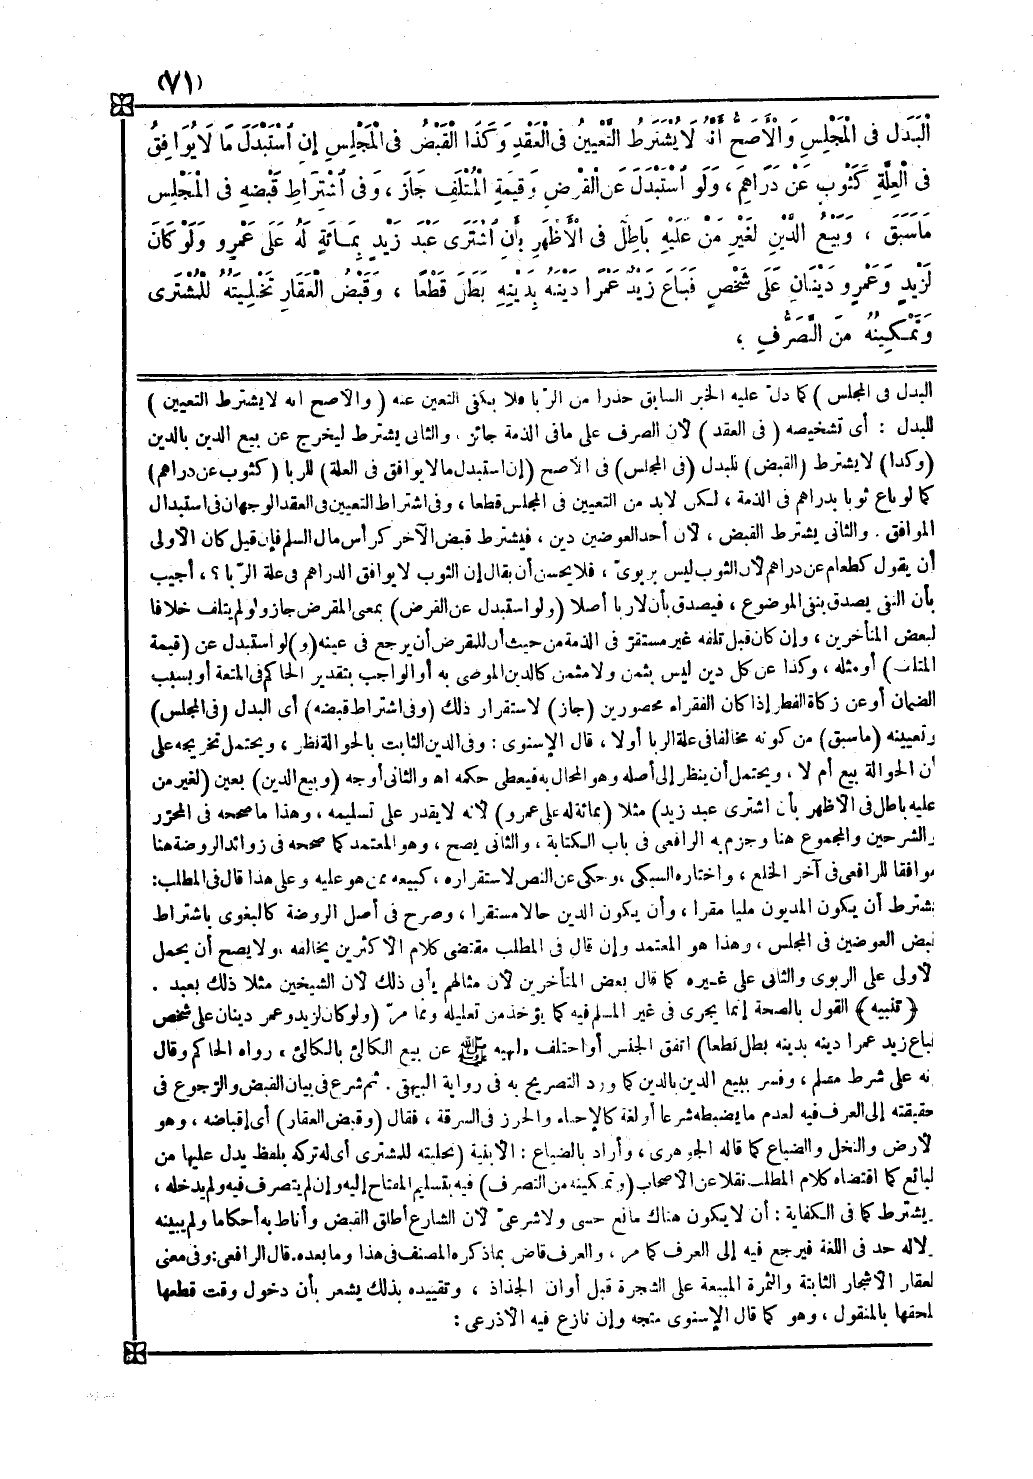 (٧١)
الْبَدَلِ فِى الْمَجْلِسِ وَالْأَصَحُّ أَنَّهُ لَا يُشْتَرَطُ التَّعْيِينُ فِى الْعَقْدِ وَكَذَا الْقَبْضُ فِى الْمَجْلِسِ إِنِ اسْتَبْدَلَ مَا لَا يُوَافِقُ
فِى الْعِلَّةِ كَثَوْبٍ عَنْ دَرَاهِمَ ، وَلَوِ اسْتَبْدَلَ عَنِ الْقَرْضِ وَقِيمَةِ الْمُتْلَفِ جَازَ ، وَفِى اشْتِرَاطِ قَبْضِهِ فِى الْمَجْلِسِ
مَاسَبَقَ ، وَبَيْعُ الدَّيْنِ لِغَيْرِ مَنْ عَلَيْهِ بَاطِلٌ فِى الْأَظْهَرِ بِأَنِ اشْتَرَى عَبْدَ زَيْدٍ بِمَائَةٍ لَهُ عَلَى عَمْرٍو وَلَوْ كَانَ
لِزَيْدٍ وَعَمْرٍو دَيْنَانِ عَلَى شَخْصٍ فَبَاعَ زَيْدٌ عَمْرًا دَيْنَهُ بِدَيْنِهِ بَطَلَ قَطْعًا ، وَقَبْضُ الْعَقَارِ تَخْلِيَتُهُ لِلْمُشْتَرِى
وَتَمْكِينُهُ مِنَ التَّصَرُّفِ ،
البدل فى المجلس ) كما دلّ عليه الخبر السابق حذرا من الربا فلا يكفى التعين عنه ( والأصح أنه لايشترط التعيين )
للبدل : أى تشخيصه ( فى العقد ) لأن الصرف على مافى الذمة جائز . والثانى يشترط ليخرج عن بيع الدين بالدين
(وكذا) لايشترط (القبض) للبدل (فى المجلس) فى الأصح (إن استبدل مالا يوافق فى العلة) للربا (كثوب عن دراهم)
كما لو باع ثوبا بدراهم فى الذمة ، لكن لابد من التعيين فى المجلس قطعا ، وفى اشتراط التعيين فى العقد الوجهان فى استبدال
الموافق . والثانى يشترط القبض ، لأن أحد العوضين دين ، فيشترط قبض الآخر كرأس مال السلم فإن قيل كان الأولى
أن يقول كطعام عن دراهم لأن الثوب ليس بربوىّ ، فلا يحسن أن يقال إن الثوب لا يوافق الدراهم فى علة الربا ؟ ، أجيب
بأن النفى يصدق بنفى الموضوع ، فيصدق بأن لاربا أصلا (ولو استبدل عن القرض) بمعنى المقرض جاز ولو لم يتلف خلافا
لبعض المتأخرين ، وإن كان قبل تلفه غير مستقرّ فى الذمة من حيث أن للمقرض أن يرجع فى عينه (و) لو استبدل عن (قيمة
المتلف) أو مثله ، وكذا عن كل دين ليس بثمن ولا مثمن كالدين الموصى به أو الواجب بتقدير الحاكم فى المتعة أو بسبب
الضمان أو عن زكاة الفطر إذا كان الفقراء محصورين (جاز) لاستقرار ذلك (وفى اشتراط قبضه) أى البدل (فى المجلس)
وتعيينه (ماسبق) من كونه مخالفا فى علة الربا أولا ، قال الإسنوى : وفى الدين الثابت بالحوالة نظر ، ويحتمل تخريجه على
أن الحوالة بيع أم لا ، ويحتمل أن ينظر إلى أصله وهو المحال به فيعطى حكمه اه والثانى أوجه (وبيع الدين) بعين (لغير من
عليه باطل فى الأظهر بأن اشترى عبد زيد) مثلا (بمائة له على عمرو) لأنه لايقدر على تسليمه ، وهذا ماصححه فى المحرّر
والشرحين والمجموع هنا وجزم به الرافعى فى باب الكتابة ، والثانى يصح ، وهو المعتمد كما صححه فى زوائد الروضة هنا
موافقا للرافعى فى آخر الخلع ، واختاره السبكى ، وحكى عن النص لاستقراره ، كبيعه ممن هو عليه وعلى هذا قال فى المطلب :
يشترط أن يكون المديون مليا مقرا ، وأن يكون الدين حالا مستقرا ، وصرح فى أصل الروضة كالبغوى باشتراط
قبض العوضين فى المجلس ، وهذا هو المعتمد وإن قال فى المطلب مقتضى كلام الأكثرين يخالفه ، ولا يصح أن يحمل
الأولى على الربوى والثانى على غيره كما قال بعض المتأخرين لأن مثالهم يأبى ذلك لأن الشيخين مثلا ذلك بعبد .
﴿ تنبيه ﴾ القول بالصحة إنما يجرى فى غير المسلم فيه كما يؤخذ من تعليله ومما مرّ (ولو كان لزيد وعمر دينان على شخص
فباع زيد عمرا دينه بدينه بطل قطعا) اتفق الجنس أو اختلف لنهيه ﷺ عن بيع الكالئ بالكالئ ، رواه الحاكم وقال
إنه على شرط مسلم ، وفسر ببيع الدين بالدين كما ورد التصريح به فى رواية البيهقى . ثم شرع فى بيان القبض والرجوع فى
حقيقته إلى العرف فيه لعدم مايضبطه شرعا أو لغة كالإحياء والحرز فى السرقة ، فقال (وقبض العقار) أى إقباضه ، وهو
الأرض والنخل والضياع كما قاله الجوهرى ، وأراد بالضياع : الأبنية (تخليته للمشترى أى له تركه بلفظ يدل عليها من
البائع كما اقتضاه كلام المطلب نقلا عن الأصحاب (وتمكينه من التصرف) فيه بتسليم المفتاح إليه وإن لم يتصرف فيه ولم يدخله ،
ويشترط كما فى الكفاية : أن لا يكون هناك مانع حسى ولا شرعىّ لأن الشارع أطلق القبض وأناط به أحكاما ولم يبينه
ولاله حد فى اللغة فيرجع فيه إلى العرف كما مر ، والعرف قاض بماذكره المصنف فى هذا وما بعده . قال الرافعى : وفى معنى
العقار الأشجار الثابتة والثمرة المبيعة على الشجرة قبل أوان الجذاذ ، وتقييده بذلك يشعر بأن دخول وقت قطعها
يلحقها بالمنقول ، وهو كما قال الإسنوى متجه وإن نازع فيه الأذرعى :